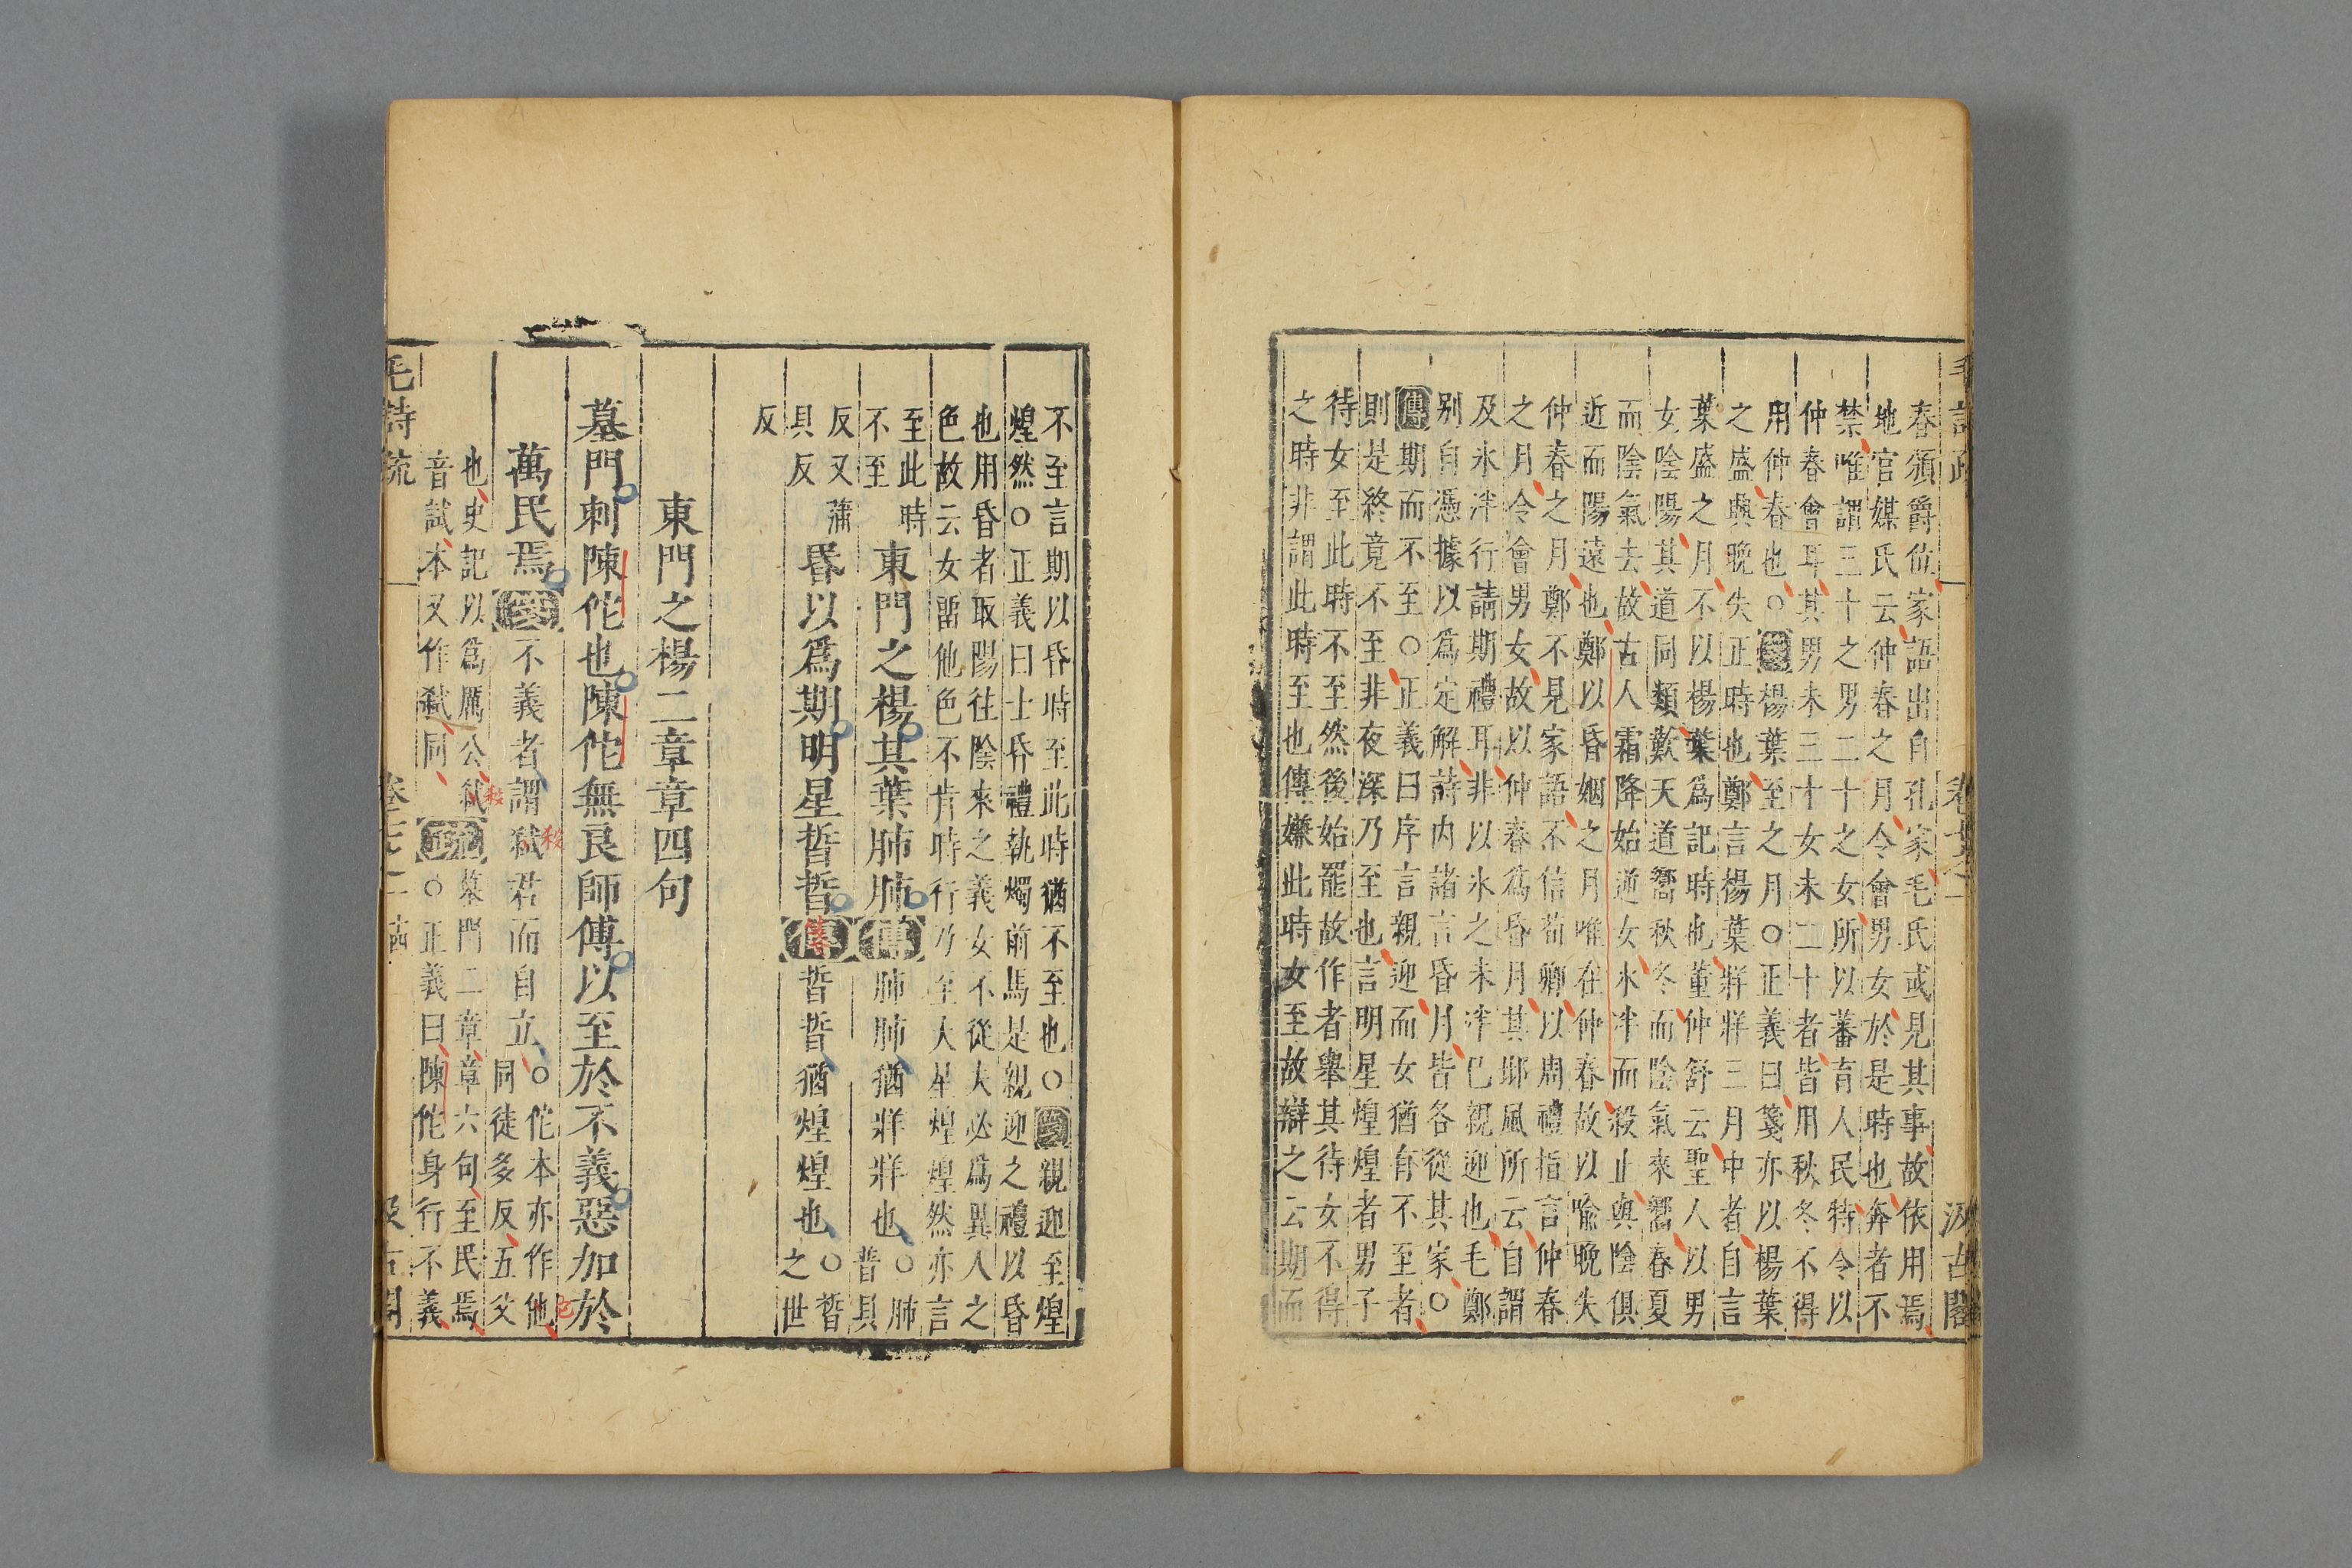 毛詩疏 卷七之一 汲古閣
春頒爵位家語出自孔家毛氏或見其事故依用焉
地官媒氏云仲春之月令會男女於是時也奔者不
禁唯謂三十之男二十之女所以蕃育人民特令以
仲春會耳其男未三十女未二十者皆用秋冬不得
用仲春也○楊葉至之月○正義曰箋亦以楊葉
之盛盛興晚失正時也鄭言楊葉牂牂三月中者自言
葉盛之月不以楊葉為記時也董仲舒云聖人以男
女陰陽其道同類歎天道嚮秋冬而陰氣來嚮春夏
而陰氣去故古人霜降始逆女氷泮而殺止與陰俱
近而陽遠也鄭以昏姻之月唯在仲春故以喻晚失
仲春之月鄭不見家語不信荀卿以周禮指言仲春
之月令會男女故以仲春為昏月其邶風所云自謂
及氷泮行請期禮耳非以氷之未泮巳親迎也毛鄭
别自憑據以為定解詩内諸言昏月皆各從其家○
傳期而不至○正義曰序言親迎而女猶有不至者
則是終竟不至非夜深乃至也言明星煌煌者男子
待女至此時不至然後始罷故作者舉其待女不得
之時非謂此時時至也傳嫌此時女至故辯之云期而
不至言期以昏時至此時猶不至也○親迎至煌
煌然○正義曰士昏禮執燭前馬是親迎之禮以昏
也用昏者取陽往陰來之義女不從夫必為異人之
色故云女留他色不肯時行乃至大星煌煌然亦言
至此時
不至
東門之楊其葉肺肺傳肺肺猶牂牂也○肺
普貝
反又蒲
貝反
昏以為期明星晢晢傳晢晢猶煌煌也○晢
之世
反
東門之楊二章章四句
墓門刺陳佗也陳佗無良師傅以至於不義惡加於
萬民焉不義者謂弑君而自立○佗本亦作他
同徒多反五父
也史記以為厲公弑
音試本又作殺同
墓門二章章六句至民焉
○正義曰陳佗身行不義
毛詩疏